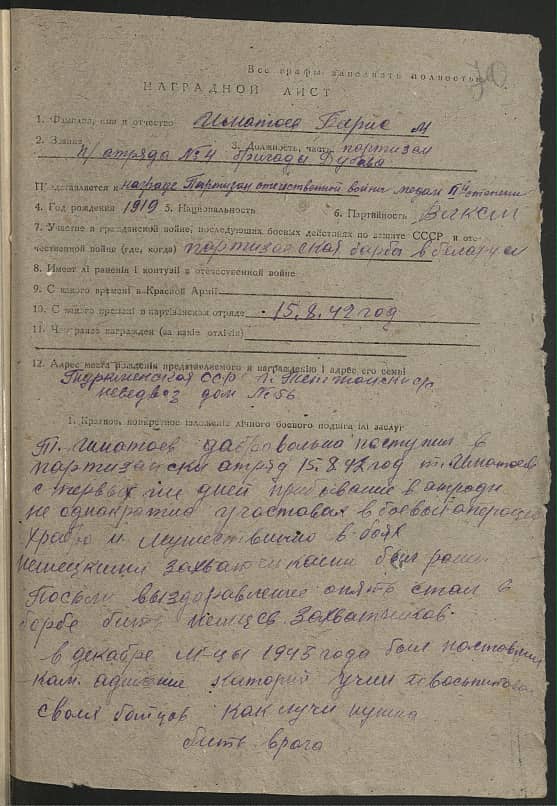 Все графы заполнять полностью
НАГРАДНОЙ ЛИСТ
1. Фамилия, имя и отчество Ишатоев Барис М
2. Звание 3. Должность, часть партизан
п/отряда №4 бригады Дубова
Представляется к награде Партизан отечественной войны медал IIй степени
4. Год рождения 1919 5. Национальность 6. Партийность ВЛКСМ
7. Участие в гражданской войне, последующих боевых действиях по защите СССР и оте-
чественной войне (где, когда) партизанская барба в Беларусеи
8. Имеет лі раненія і контузіі в отечественной войне
9. С какого времені в Красной Арміі
10. С какого времені в партізанском отряде 15.8.42 год
11. Чем ранее награжден (за какіе отлічія)
12. Адрес места рожденія представляемого к награжденію і адрес его семьі
Туркменская ССР г.
дом №56
1. Краткое, конкретное ізложеніе лічного боевого подвіга ілі заслуг
Т. Ишатоев дабравольна поступил в
партизански атряд 15.8.42 год т. Ишатоев
с первых же дней прибивание в атряди
не однакратна участовал в боевый операцию
храбро и мужествинно в боях
немецкими захватчиками был ранен
После выздаравление опять стал в
борбе бить немцев захватчиков.
в декабре м-цы 1943 года был поставлен
ком. адиление каторий учил и васпитовал
своих бойцов как лучи нужна
бить врага